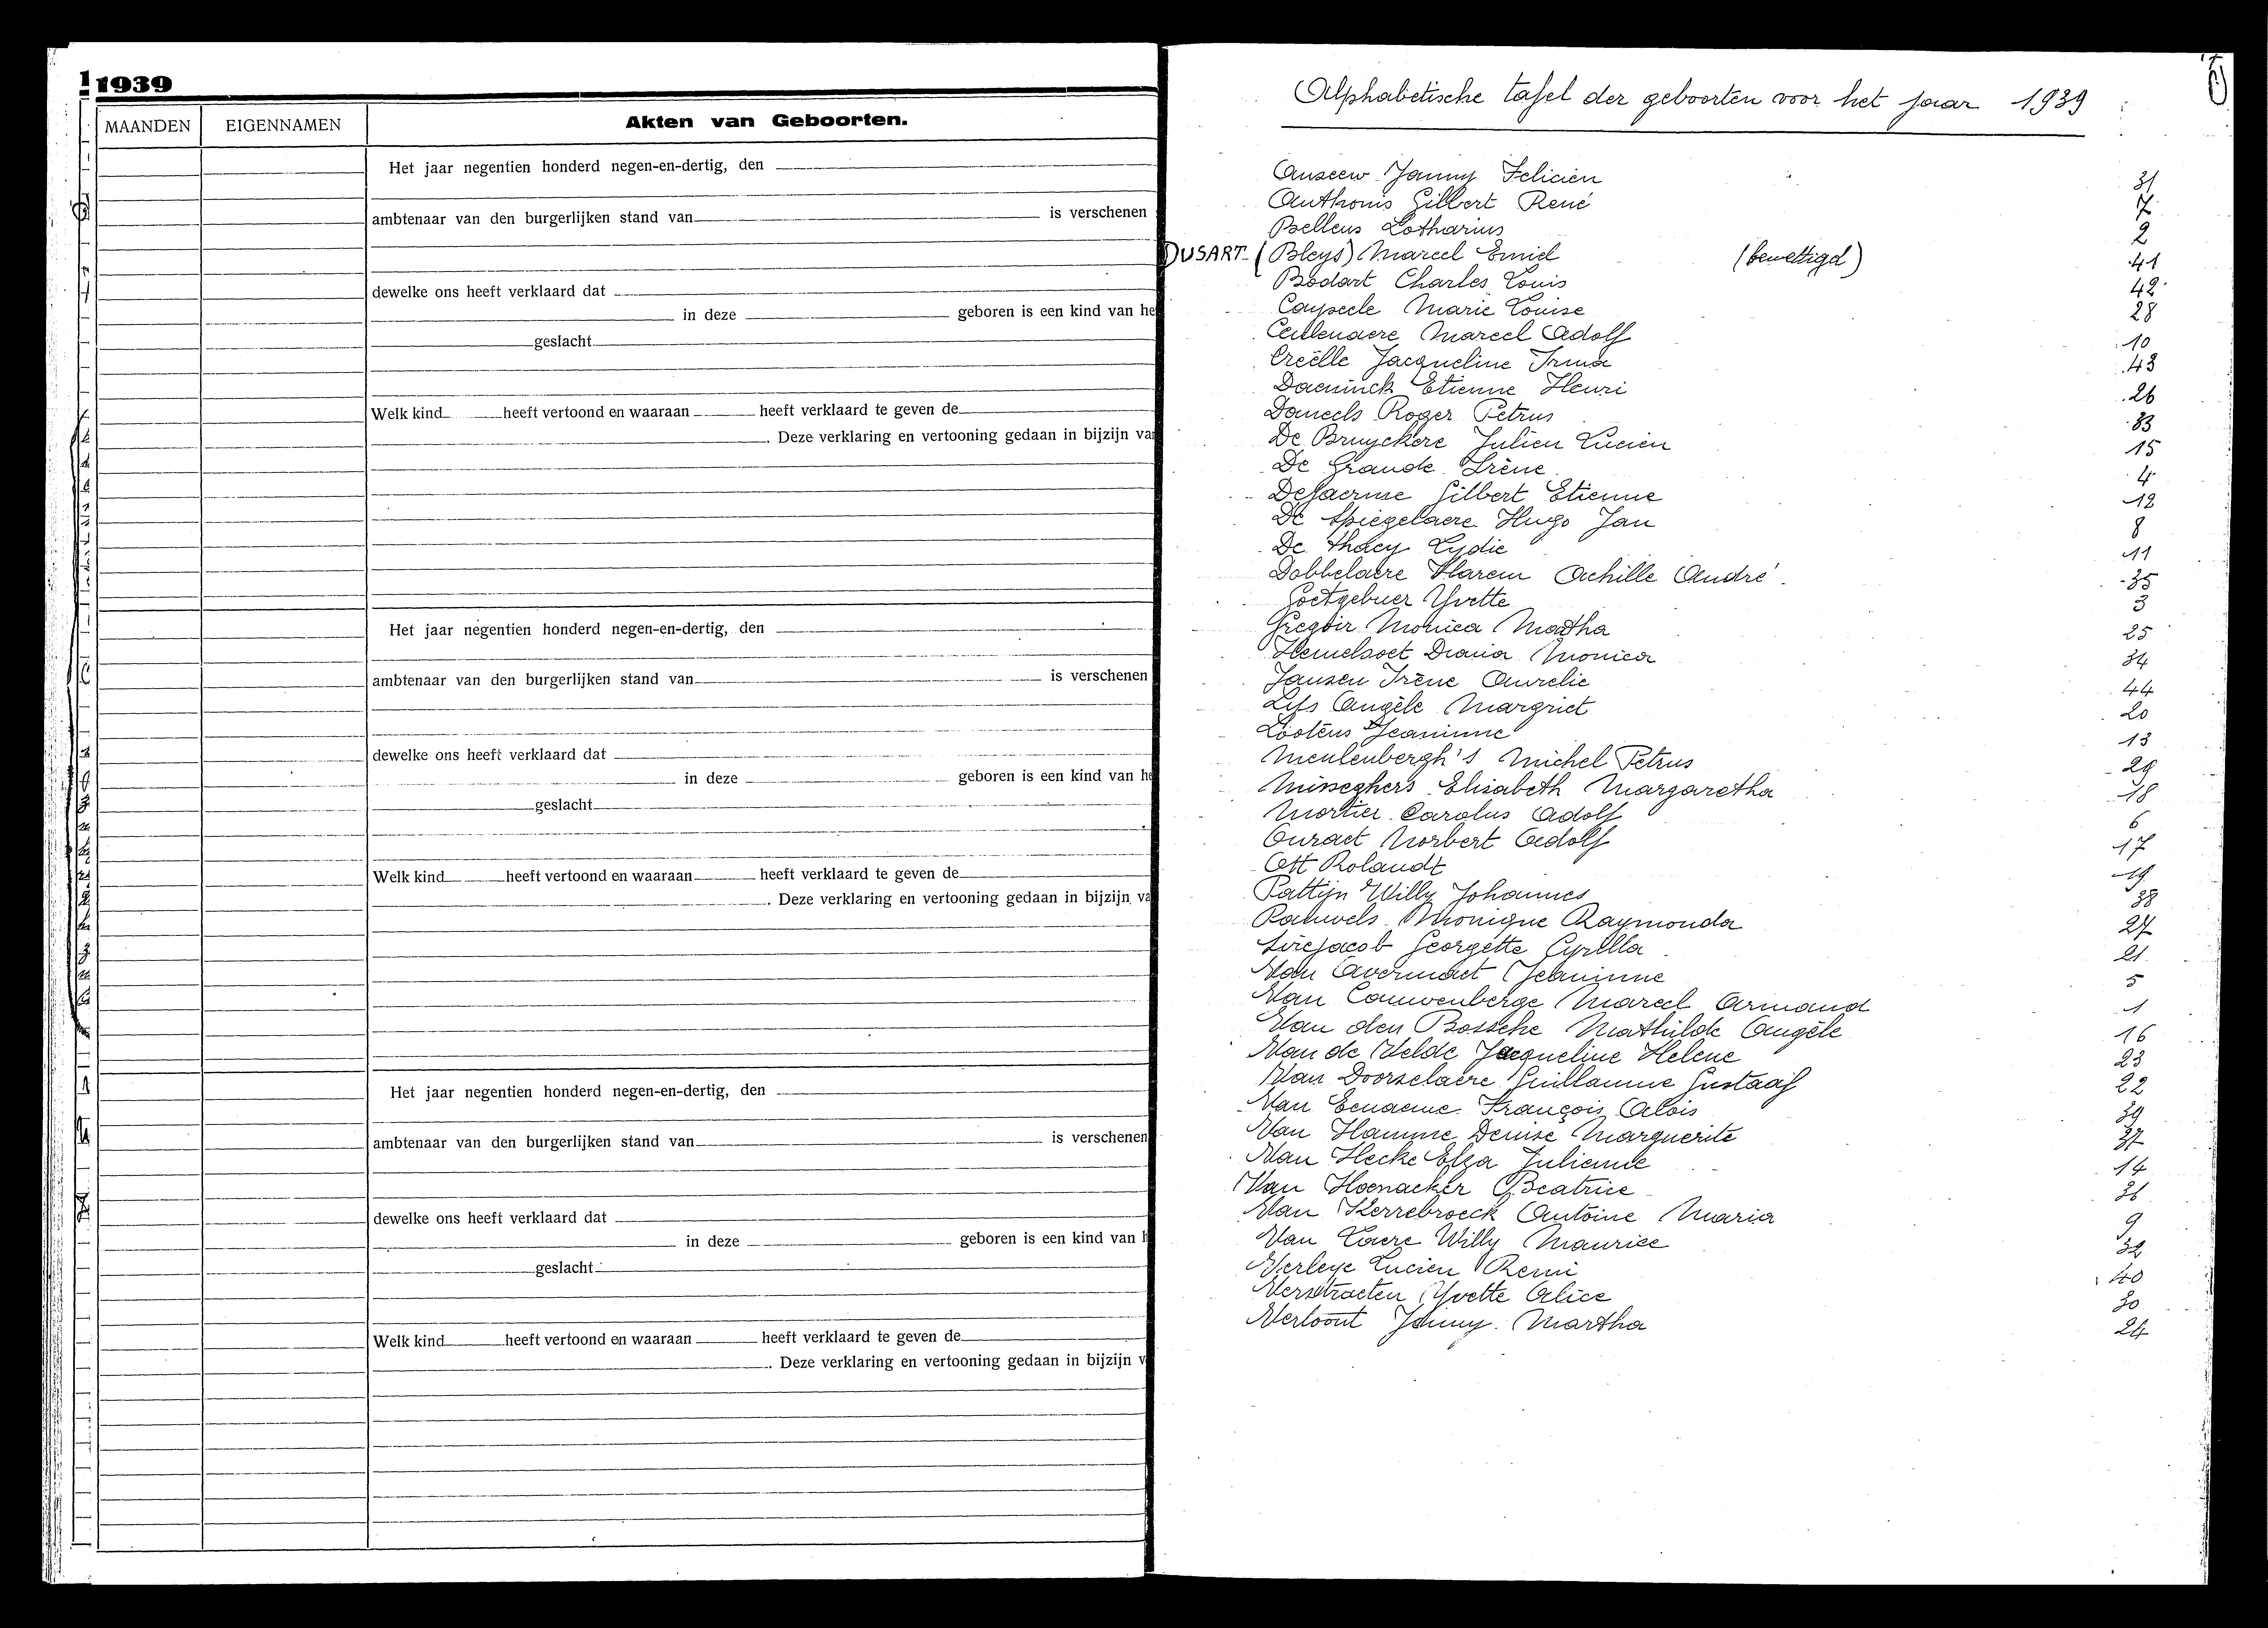 1939
MAANDEN EIGENNAMEN Akten van Geboorten.
Het jaar negentien honderd negen-en-dertig, den
ambtenaar van den burgerlijken stand van is verschenen
dewelke ons heeft verklaard dat
in deze geboren is een kind van he
geslacht
Welk kind heeft vertoond en waaraan heeft verklaard te geven de
. Deze verklaring en vertooning gedaan in bijzijn va
Het jaar negentien honderd negen-en-dertig, den
ambtenaar van den burgerlijken stand van is verschenen
dewelke ons heeft verklaard dat
in deze geboren is een kind van he
geslacht
Welk kind heeft vertoond en waaraan heeft verklaard te geven de
. Deze verklaring en vertooning gedaan in bijzijn va
Het jaar negentien honderd negen-en-dertig, den
ambtenaar van den burgerlijken stand van is verschenen
dewelke ons heeft verklaard dat
in deze geboren is een kind van h
geslacht
Welk kind heeft vertoond en waaraan heeft verklaard te geven de
. Deze verklaring en vertooning gedaan in bijzijn v
Alphabetische tafel der geboorten voor het jaar 1939
Anseew Janny Felicien 31
Anthonis Gilbert René 7
Bellens Lotharius 2
DUSART (Bleys) Marcel Emiel (bewettigd) 41
Bodart Charles Louis 42
Caysecle Marie Louise 28
Ceulenaere Marcel Adolf 10
Creëlle Jacqueline Irma 43
Daeninck Etienne Henri 26
Daneels Roger Petrus 33
De Bruyckere Julien Lucien 15
De Grande Irène 4
Defaernse Gilbert Etienne 12
De Spiegelaere Hugo Jan 8
De Thaey Lydie 11
Dobbelaere Achille André 35
Goetgebuer Yvette 3
Gregoir Monica Martha 25
Hemelsoet Diana Monica 34
Jansen Irène Aurelie 44
Lifs Angèle Margriet 20
Lootens Jeaninne 13
Meulenbergh's Michel Petrus 29
Misseghers Elisabeth Margaretha 18
Mortier Carolus Adolf 6
Onraet Norbert Adolf 17
Ott Rolandt 19
Pattijn Willy Johannes 38
Pauwels Monique Raymonda 27
Sirejacob Georgette Cyrilla 21
Van Avermaet Jeaninne 5
Van Cauwenberge Marcel Armand 1
Van den Bossche Mathilde Angèle 16
Van de Velde Jacqueline Helene 23
Van Doorselaere Guillaume Gustaaf 22
Van Eenaeme François Alois 39
Van Hamme Denise Marguerite 37
Van Hecke Elza Julienne 14
Van Hoenacker Beatrice 36
Van Kerrebroeck Antoine Maria 9
Van Laere Willy Maurice 32
Verleye Lucien Remi 40
Verstraeten Yvette Alice 30
Vertoont Jenny Martha 24